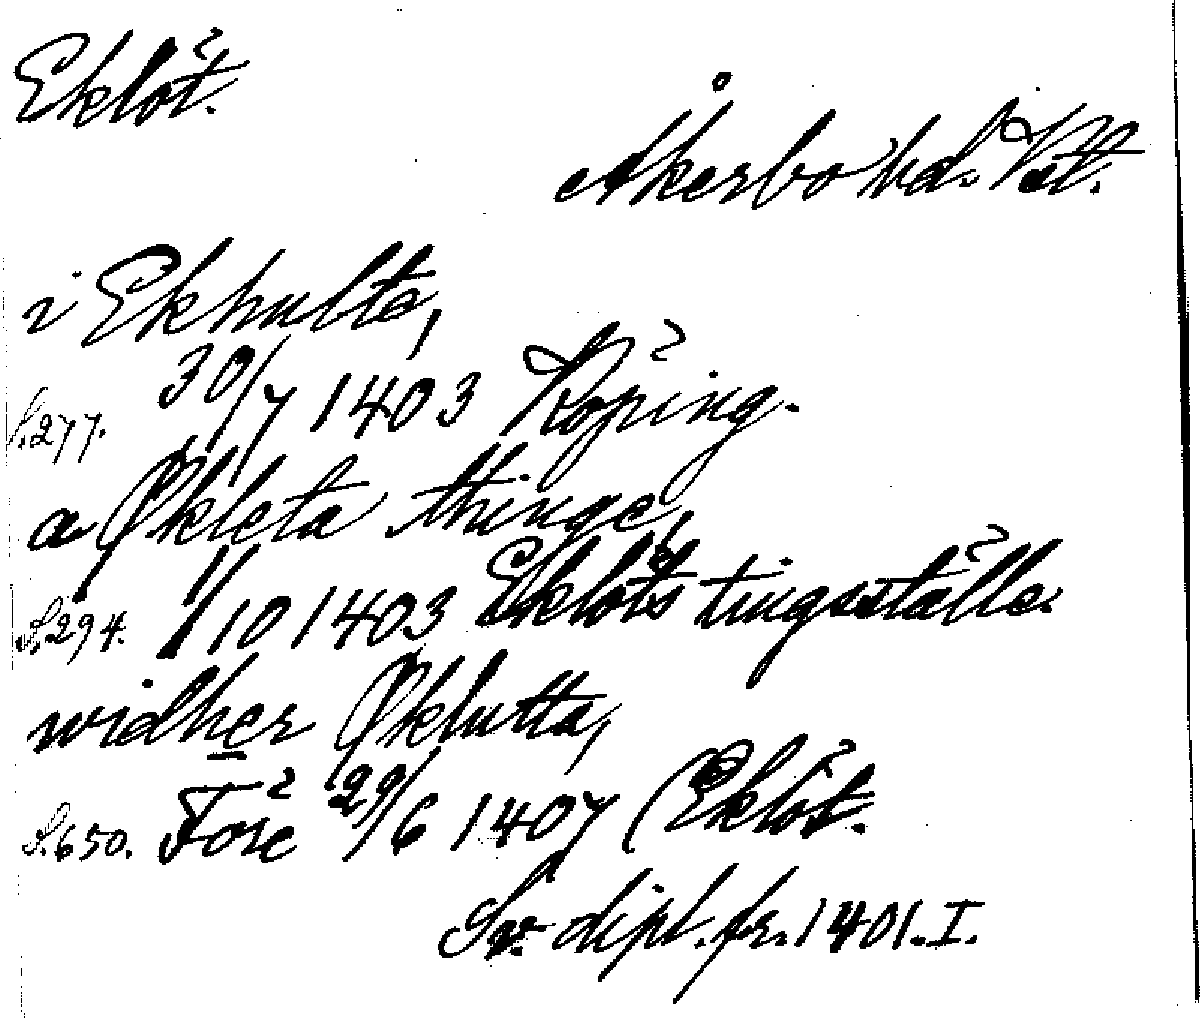 Eklöt.
Åkerbo hd. Vstl.
i Ekhulte,
S. 277. 30/7 1403 Köping.
a Økleta thinge,
S. 294. 1/10 1403 Eklöts tingsställe.
widher Øklutta,
S. 650. Före 29/6 1407 (Eklöt.
Sv. dipl. fr. 1401. I.